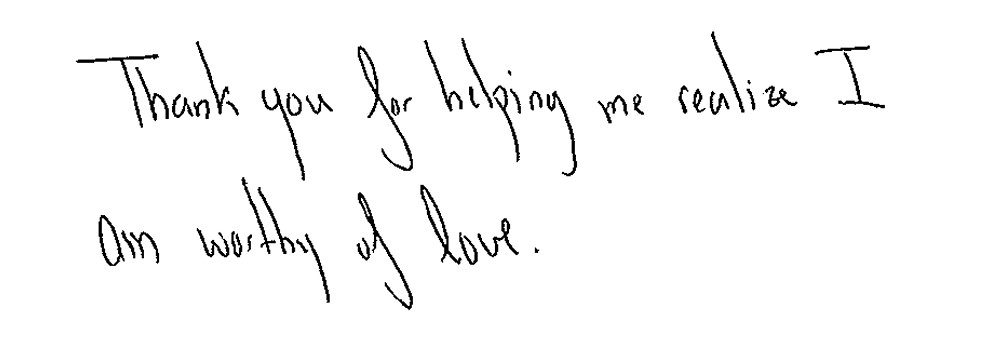 Thank you for helping me realize I
am worthy of love.